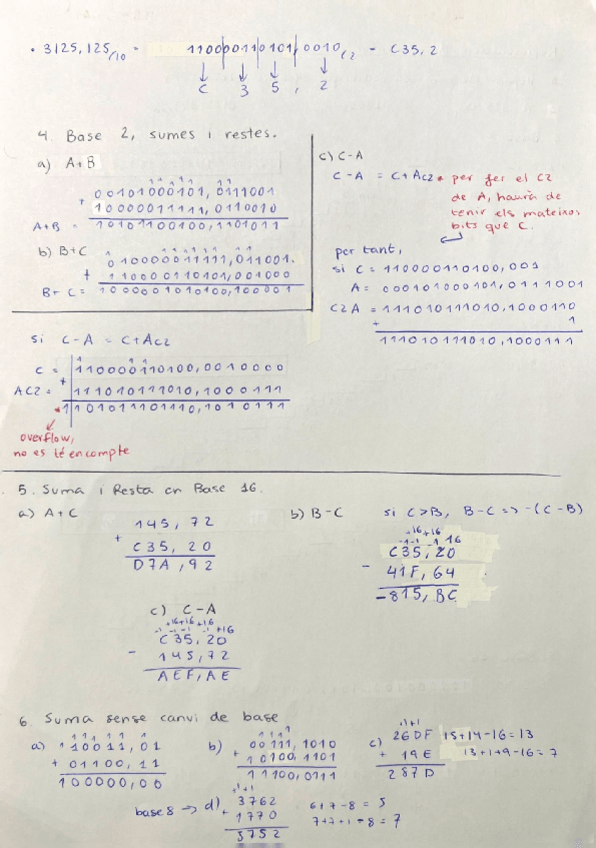 • 3125,125/10 = 110000110101,0010/2 = C35,2
C 3 5 , 2
4. Base 2, sumes i restes.
a) A+B
00101000101,0111001
+ 10000011111,0110010
A+B = 10101100100,1101011
b) B+C
010000011111,011001.
+ 110000110101,001000
B+C = 1000001010100,100001
c) C-A
C-A = C+AC2 • per fer el C2
de A, haurà de
tenir els mateixos
bits que C.
per tant,
si C = 110000110100,001
A = 000101000101,0111001
C2A = 111010111010,1000110
+ 1
111010111010,1000111
si C-A = C+AC2
C = 110000110100,0010000
AC2 = + 111010111010,1000111
1101011101110,1010111
overflow,
no es té en compte
5. Suma i Resta en Base 16.
a) A+C
145,72
+ C35,20
D7A,92
b) B-C
si C>B, B-C => -(C-B)
+16 +16
-1 -1 -1 16
C35,20
- 41F,64
-815,BC
c) C-A
+16 +16 +16
-1 -1 -1 -1 +16
C35,20
- 145,72
AEF,AE
6. Suma sense canvi de base
a) 110011,01
+ 01100,11
100000,00
b) 00111,1010
+ 10100,1101
11100,0111
c) +1+1
26DF 15+14-16=13
+ 19E 13+1+9-16=7
287D
base 8 → d) +1+1
3762 6+7-8=5
+ 1770 7+7+1-8=7
3752